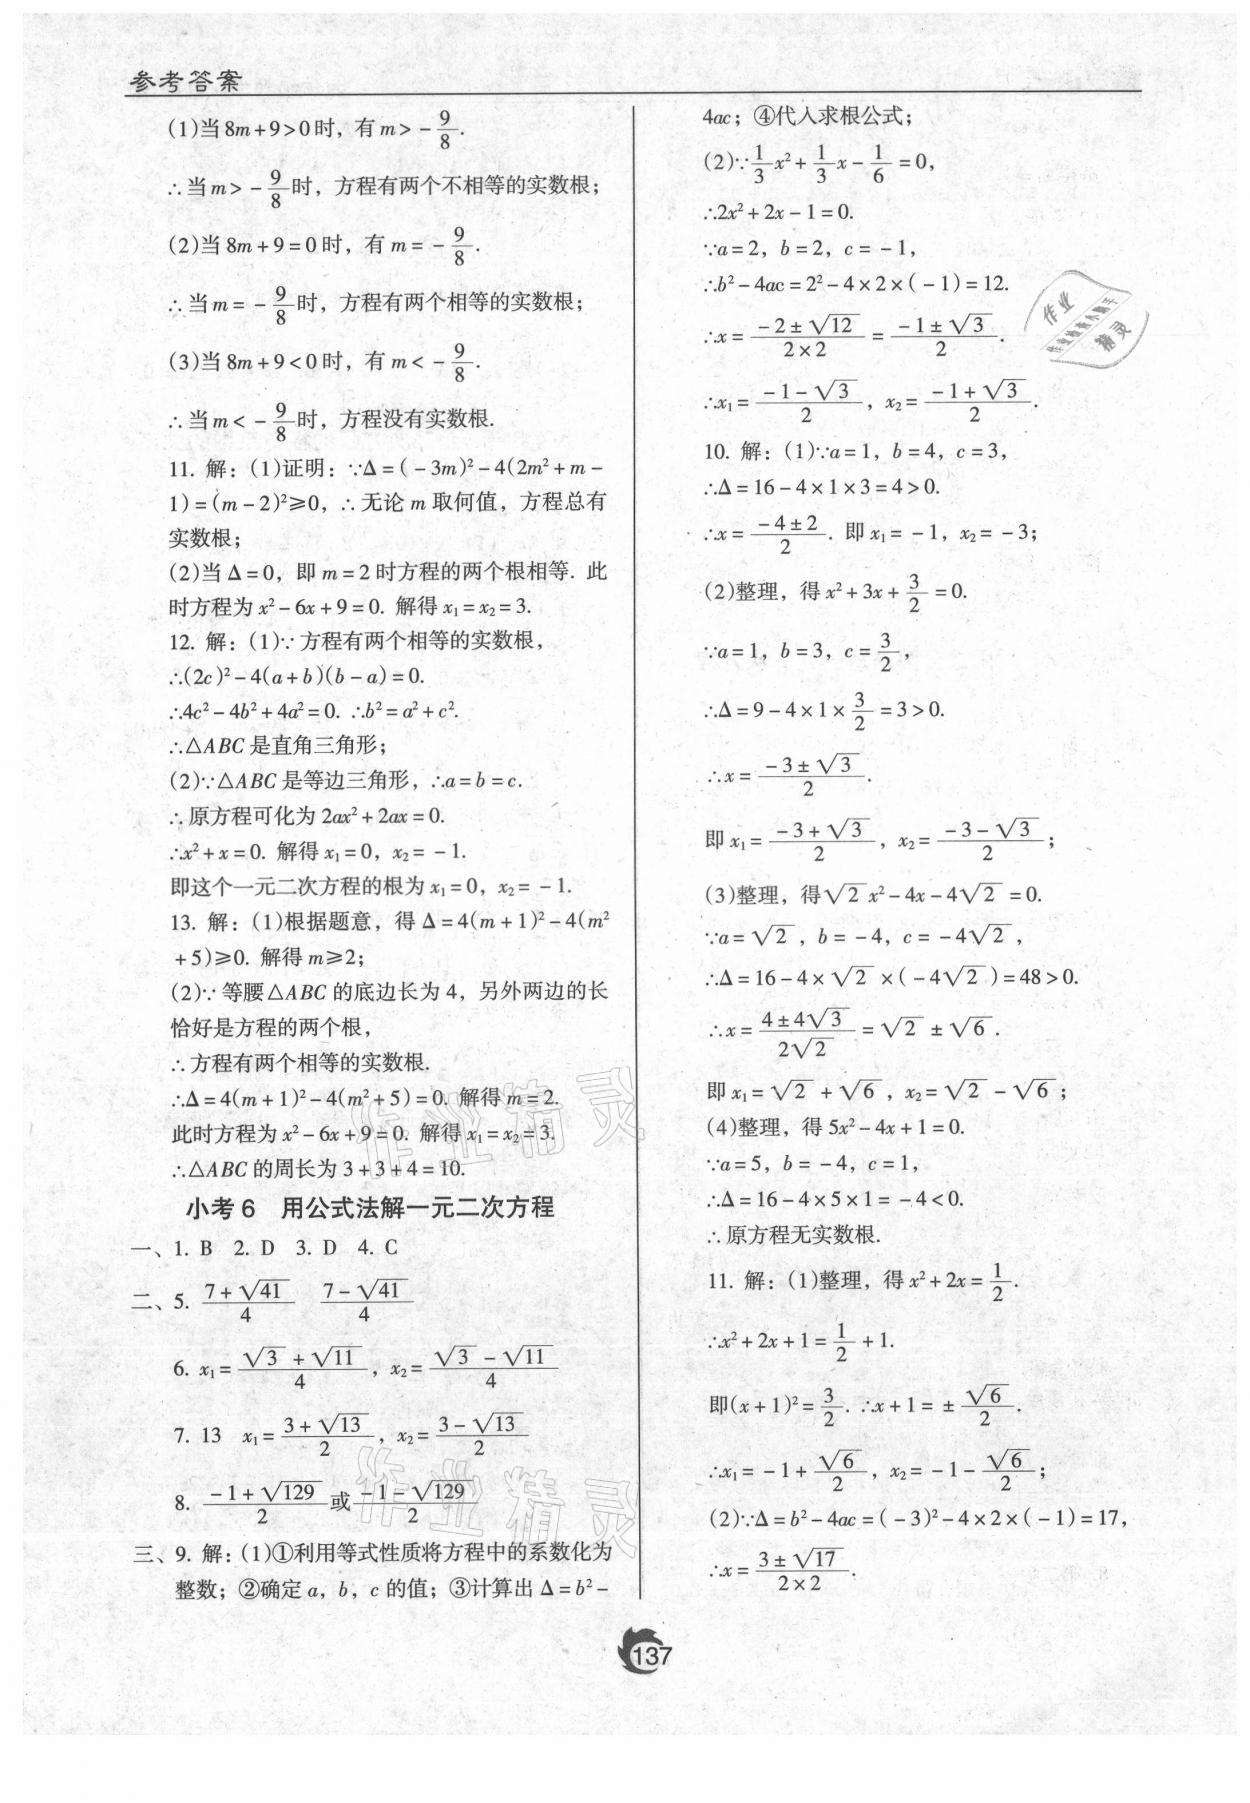 参考答案
(1)当 8m+9>0 时，有 m>-9/8.
∴当 m>-9/8 时，方程有两个不相等的实数根；
(2)当 8m+9=0 时，有 m=-9/8.
∴当 m=-9/8 时，方程有两个相等的实数根；
(3)当 8m+9<0 时，有 m<-9/8.
∴当 m<-9/8 时，方程没有实数根.
11. 解：(1)证明：∵Δ=(-3m)²-4(2m²+m-
1)=(m-2)²≥0，∴无论 m 取何值，方程总有
实数根；
(2)当 Δ=0，即 m=2 时方程的两个根相等. 此
时方程为 x²-6x+9=0. 解得 x₁=x₂=3.
12. 解：(1)∵方程有两个相等的实数根，
∴(2c)²-4(a+b)(b-a)=0.
∴4c²-4b²+4a²=0. ∴b²=a²+c².
∴△ABC 是直角三角形；
(2)∵△ABC 是等边三角形，∴a=b=c.
∴原方程可化为 2ax²+2ax=0.
∴x²+x=0. 解得 x₁=0，x₂=-1.
即这个一元二次方程的根为 x₁=0，x₂=-1.
13. 解：(1)根据题意，得 Δ=4(m+1)²-4(m²
+5)≥0. 解得 m≥2；
(2)∵等腰△ABC 的底边长为 4，另外两边的长
恰好是方程的两个根，
∴方程有两个相等的实数根.
∴Δ=4(m+1)²-4(m²+5)=0. 解得 m=2.
此时方程为 x²-6x+9=0. 解得 x₁=x₂=3.
∴△ABC 的周长为 3+3+4=10.
小考 6 用公式法解一元二次方程
一、1. B 2. D 3. D 4. C
二、5. (7+√41)/4 (7-√41)/4
6. x₁=(√3+√11)/4，x₂=(√3-√11)/4
7. 13 x₁=(3+√13)/2，x₂=(3-√13)/2
8. (-1+√129)/2 或 (-1-√129)/2
三、9. 解：(1)①利用等式性质将方程中的系数化为
整数；②确定 a，b，c 的值；③计算出 Δ=b²-
4ac；④代入求根公式；
(2)∵1/3 x²+1/3 x-1/6=0，
∴2x²+2x-1=0.
∵a=2，b=2，c=-1，
∴b²-4ac=2²-4×2×(-1)=12.
∴x=(-2±√12)/(2×2)=(-1±√3)/2.
∴x₁=(-1-√3)/2，x₂=(-1+√3)/2.
10. 解：(1)∵a=1，b=4，c=3，
∴Δ=16-4×1×3=4>0.
∴x=(-4±2)/2. 即 x₁=-1，x₂=-3；
(2)整理，得 x²+3x+3/2=0.
∵a=1，b=3，c=3/2，
∴Δ=9-4×1×3/2=3>0.
∴x=(-3±√3)/2.
即 x₁=(-3+√3)/2，x₂=(-3-√3)/2；
(3)整理，得√2x²-4x-4√2=0.
∵a=√2，b=-4，c=-4√2，
∴Δ=16-4×√2×(-4√2)=48>0.
∴x=(4±4√3)/(2√2)=√2±√6.
即 x₁=√2+√6，x₂=√2-√6；
(4)整理，得 5x²-4x+1=0.
∵a=5，b=-4，c=1，
∴Δ=16-4×5×1=-4<0.
∴原方程无实数根.
11. 解：(1)整理，得 x²+2x=1/2.
∴x²+2x+1=1/2+1.
即(x+1)²=3/2. ∴x+1=±√6/2.
∴x₁=-1+√6/2，x₂=-1-√6/2；
(2)∵Δ=b²-4ac=(-3)²-4×2×(-1)=17，
∴x=(3±√17)/(2×2).
137
作业
精灵
作业精灵
作业精灵